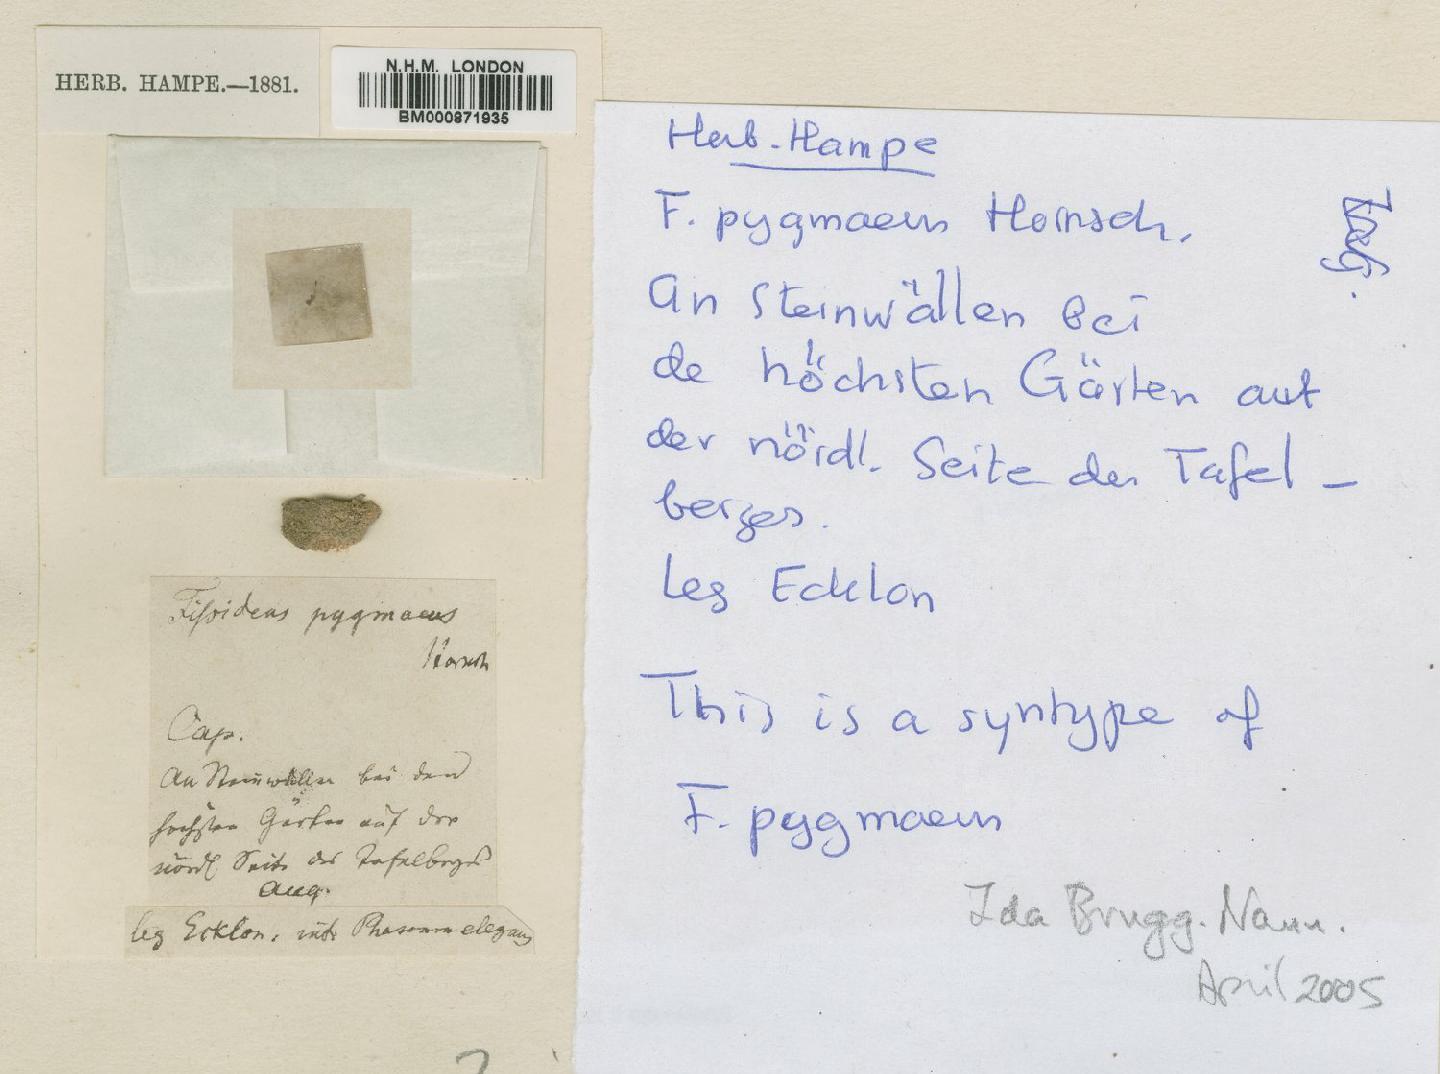 HERB. HAMPE.—1881.
N.H.M. LONDON
BM000871935
Fissidens pygmaeus
Hornsch
Cap.
An Steinwällen bei den
höchsten Gärten auf der
nördl Seite des Tafelberges
Aug.
leg Ecklon. inter Phascum elegans
Herb. Hampe
F. pygmaeus Hornsch.
An Steinwällen bei
de höchsten Gärten auf
der nördl. Seite des Tafel-
berges.
leg Ecklon
This is a syntype of
F. pygmaeus
Ida Brugg. Nann.
April 2005